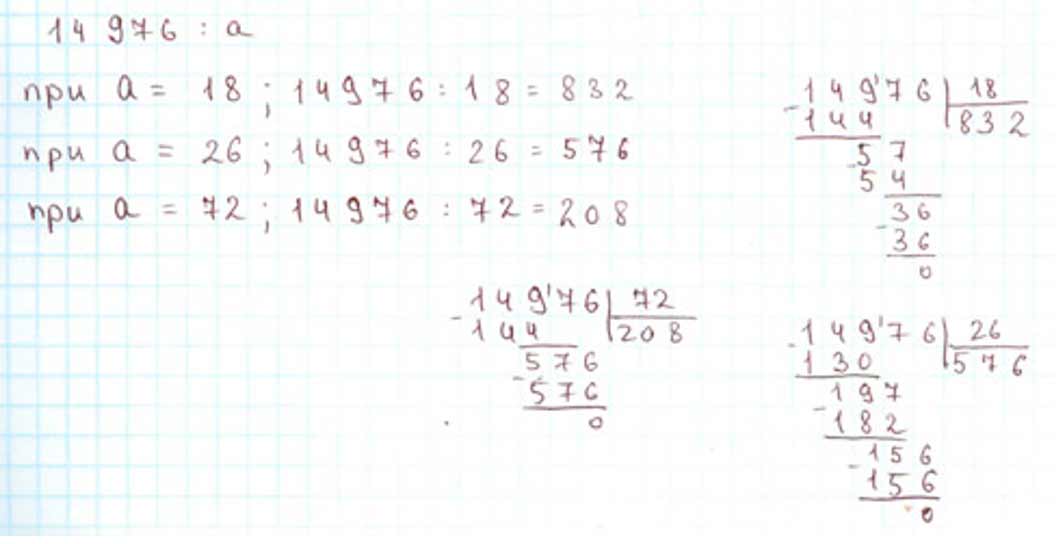 14 976 : a
при a = 18 ; 14976 : 18 = 832
при a = 26 ; 14976 : 26 = 576
при a = 72 ; 14976 : 72 = 208
149'76 | 18
- 144 | 832
57
- 54
36
- 36
0
149'76 | 72
- 144 | 208
576
- 576
0
149'76 | 26
- 130 | 576
197
- 182
156
- 156
0